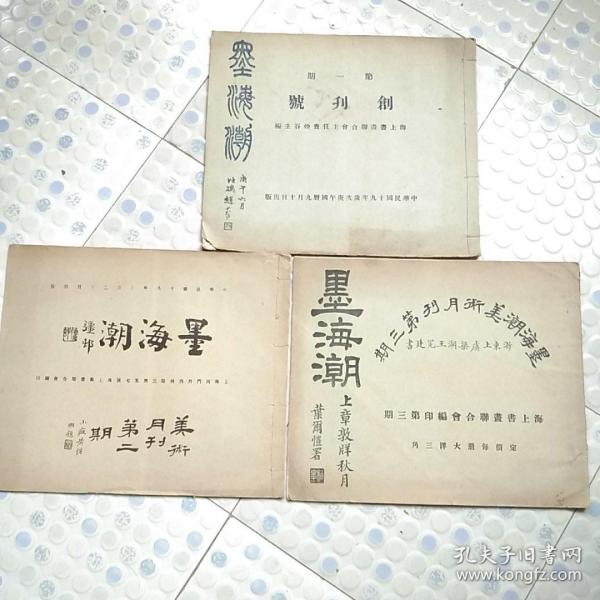 墨海潮
庚午六月
期一第
號刊創
編主谷烟查任主會合聯畫書上海
版出日十月九曆國午庚次歲年九十國民華中
墨海潮
美術
月刊
第二
期
墨海潮
上章敦牂秋月
葉爾愷署
墨海潮美術月刊第三期
浙東上虞梁湖王寬建書
期三第印編會合聯畫書上海
角三洋大冊每價定
孔夫子旧书网
www.kongfz.com